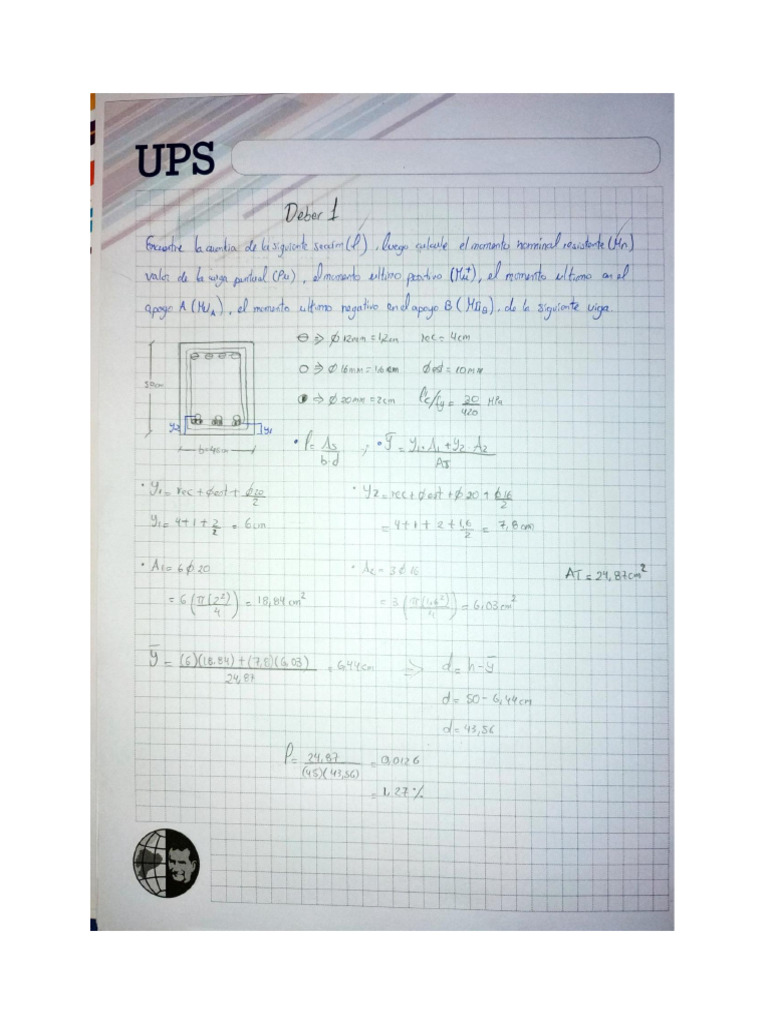 UPS
Deber 1
Encuentre la cuantía de la siguiente sección (ρ), luego calcule el momento nominal resistente (Mn)
valor de la carga puntual (Pu), el momento ultimo positivo (Mu+), el momento ultimo en el
apoyo A (MuA), el momento ultimo negativo en el apoyo B (MuB), de la siguiente viga.
⊖ => ϕ 12mm = 1,2cm rec = 4cm
○ => ϕ 16mm = 1,6cm ϕest = 10mm
◑ => ϕ 20mm = 2cm f'c/fy = 20/420 MPa
50cm
y2 y1
b=45cm
• ρ = As/b·d ; • ȳ = y1·A1 + y2·A2/AT
• y1 = rec + ϕest + ϕ20/2 • y2 = rec + ϕest + ϕ20 + ϕ16/2
y1 = 4+1+2/2 = 6cm = 4+1+2+1,6/2 = 7,8cm
• A1 = 6ϕ20 • A2 = 3ϕ16 AT = 24,87cm²
= 6(π(2²)/4) = 18,84cm² = 3(π(1,6²)/4) = 6,03cm²
ȳ = (6)(18.84)+(7,8)(6,03)/24,87 = 6,44cm => d = h-ȳ
d = 50 - 6,44cm
d = 43,56
ρ = 24,87/(45)(43,56) = 0,0126
= 1.27%